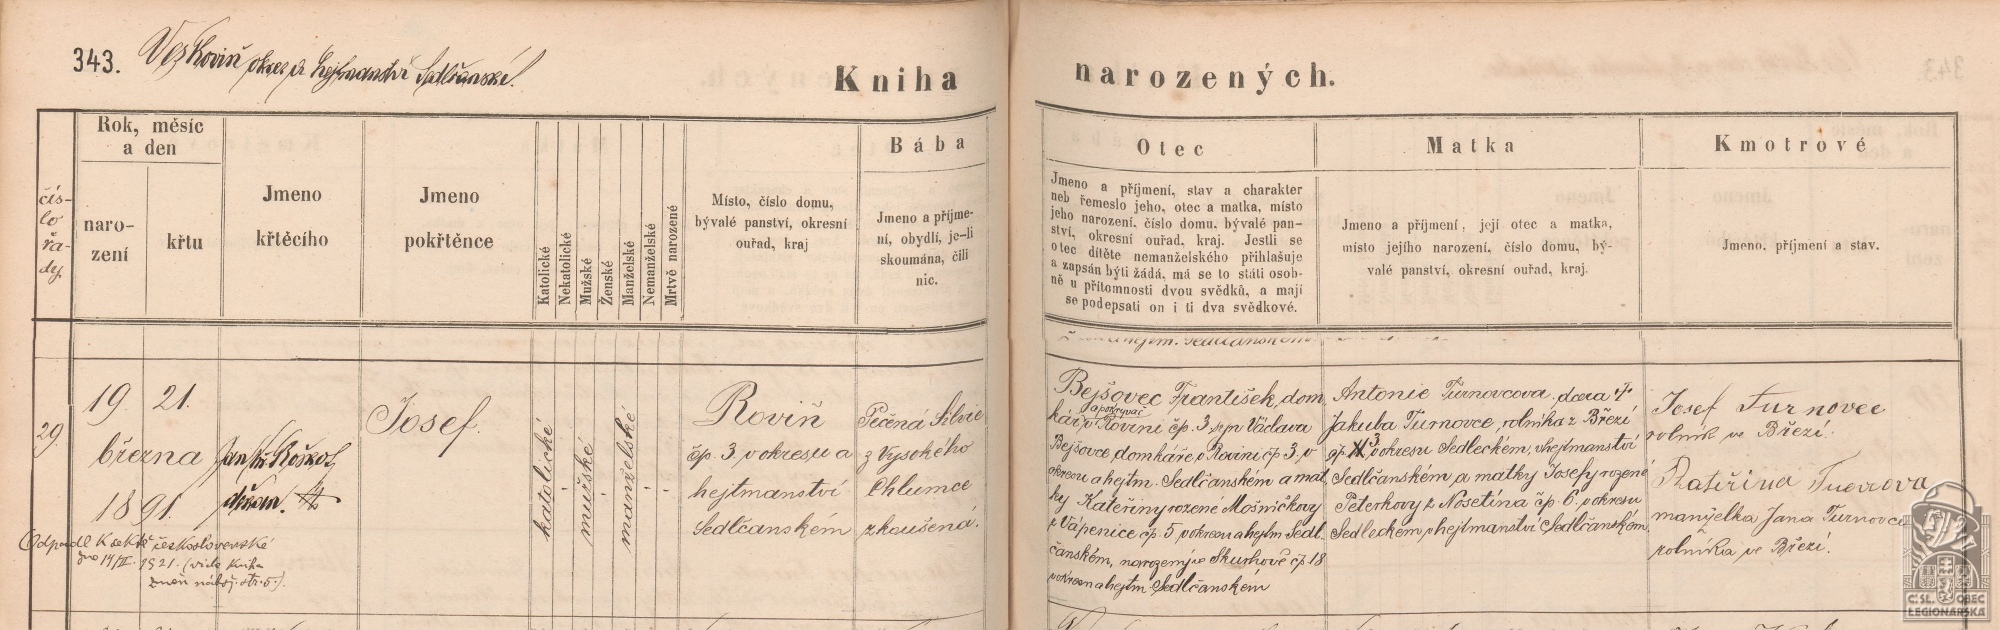 343. Ves Roviň okres a hejtmanství Sedlčanské.
Kniha narozených.
čís-
lo
řa-
dy
Rok, měsíc
a den
naro-
zení
křtu
Jmeno
křtěcího
Jmeno
pokřtěnce
Katolické
Nekatolické
Mužské
Ženské
Manželské
Nemanželské
Mrtvě narozené
Místo, číslo domu,
bývalé panství, okresní
ouřad, kraj
Bába
Jmeno a příjme-
ní, obydlí, je-li
skoumána, čili
nic.
Otec
Jmeno a příjmení, stav a charakter
neb řemeslo jeho, otec a matka, místo
jeho narození, číslo domu, bývalé pan-
ství, okresní ouřad, kraj. Jestli se
otec dítěte nemanželského přihlašuje
a zapsán býti žádá, má se to státi osob-
ně u přítomnosti dvou svědků, a mají
se podepsati on i ti dva svědkové.
Matka
Jmeno a příjmení, její otec a matka,
místo jejího narození, číslo domu, bý-
valé panství, okresní ouřad, kraj.
Kmotrové
Jmeno, příjmení a stav.
29.
19. 21.
března
1891.
děkan.
Josef
katolické
mužské
manželské
Roviň
čp. 3, v okresu a
hejtmanství
Sedlčanském
Pečená Silvie
z Vysokého
Chlumce
zkoušená.
Bejšovec František, dom,
kář v Rovini čp. 3 syn Václava
Bejšovce, domkáře v Rovini čp 3, v
okresu a hejtm. Sedlčanském a mat
ky Kateřiny rozené Mošničkovy
z Vápenice čp. 5 v okresu a hejtm Sedl
čanském, narozený ve Skuhově čp. 18
v okresu a hejtm. Sedlčanském
Antonie Turnovcova, dcera †
Jakuba Turnovce, rolníka z Březí
čp. 3 v okresu Sedleckém, v hejtmanství
Sedlčanském a matky Josefy rozené
Peterkovy z Nosetína čp. 6. v okresu
Sedleckém v hejtmanství Sedlčanském.
Josef Turnovec
rolník ve Březí.
Kateřina
manželka Jana Turnovce
rolníka ve Březí.
Odpadl k sektě československé
dne 14/II. 1921. (vide Kniha
změn nábož. str. 5.)
Č.SL. OBEC
LEGIONÁŘSKÁ